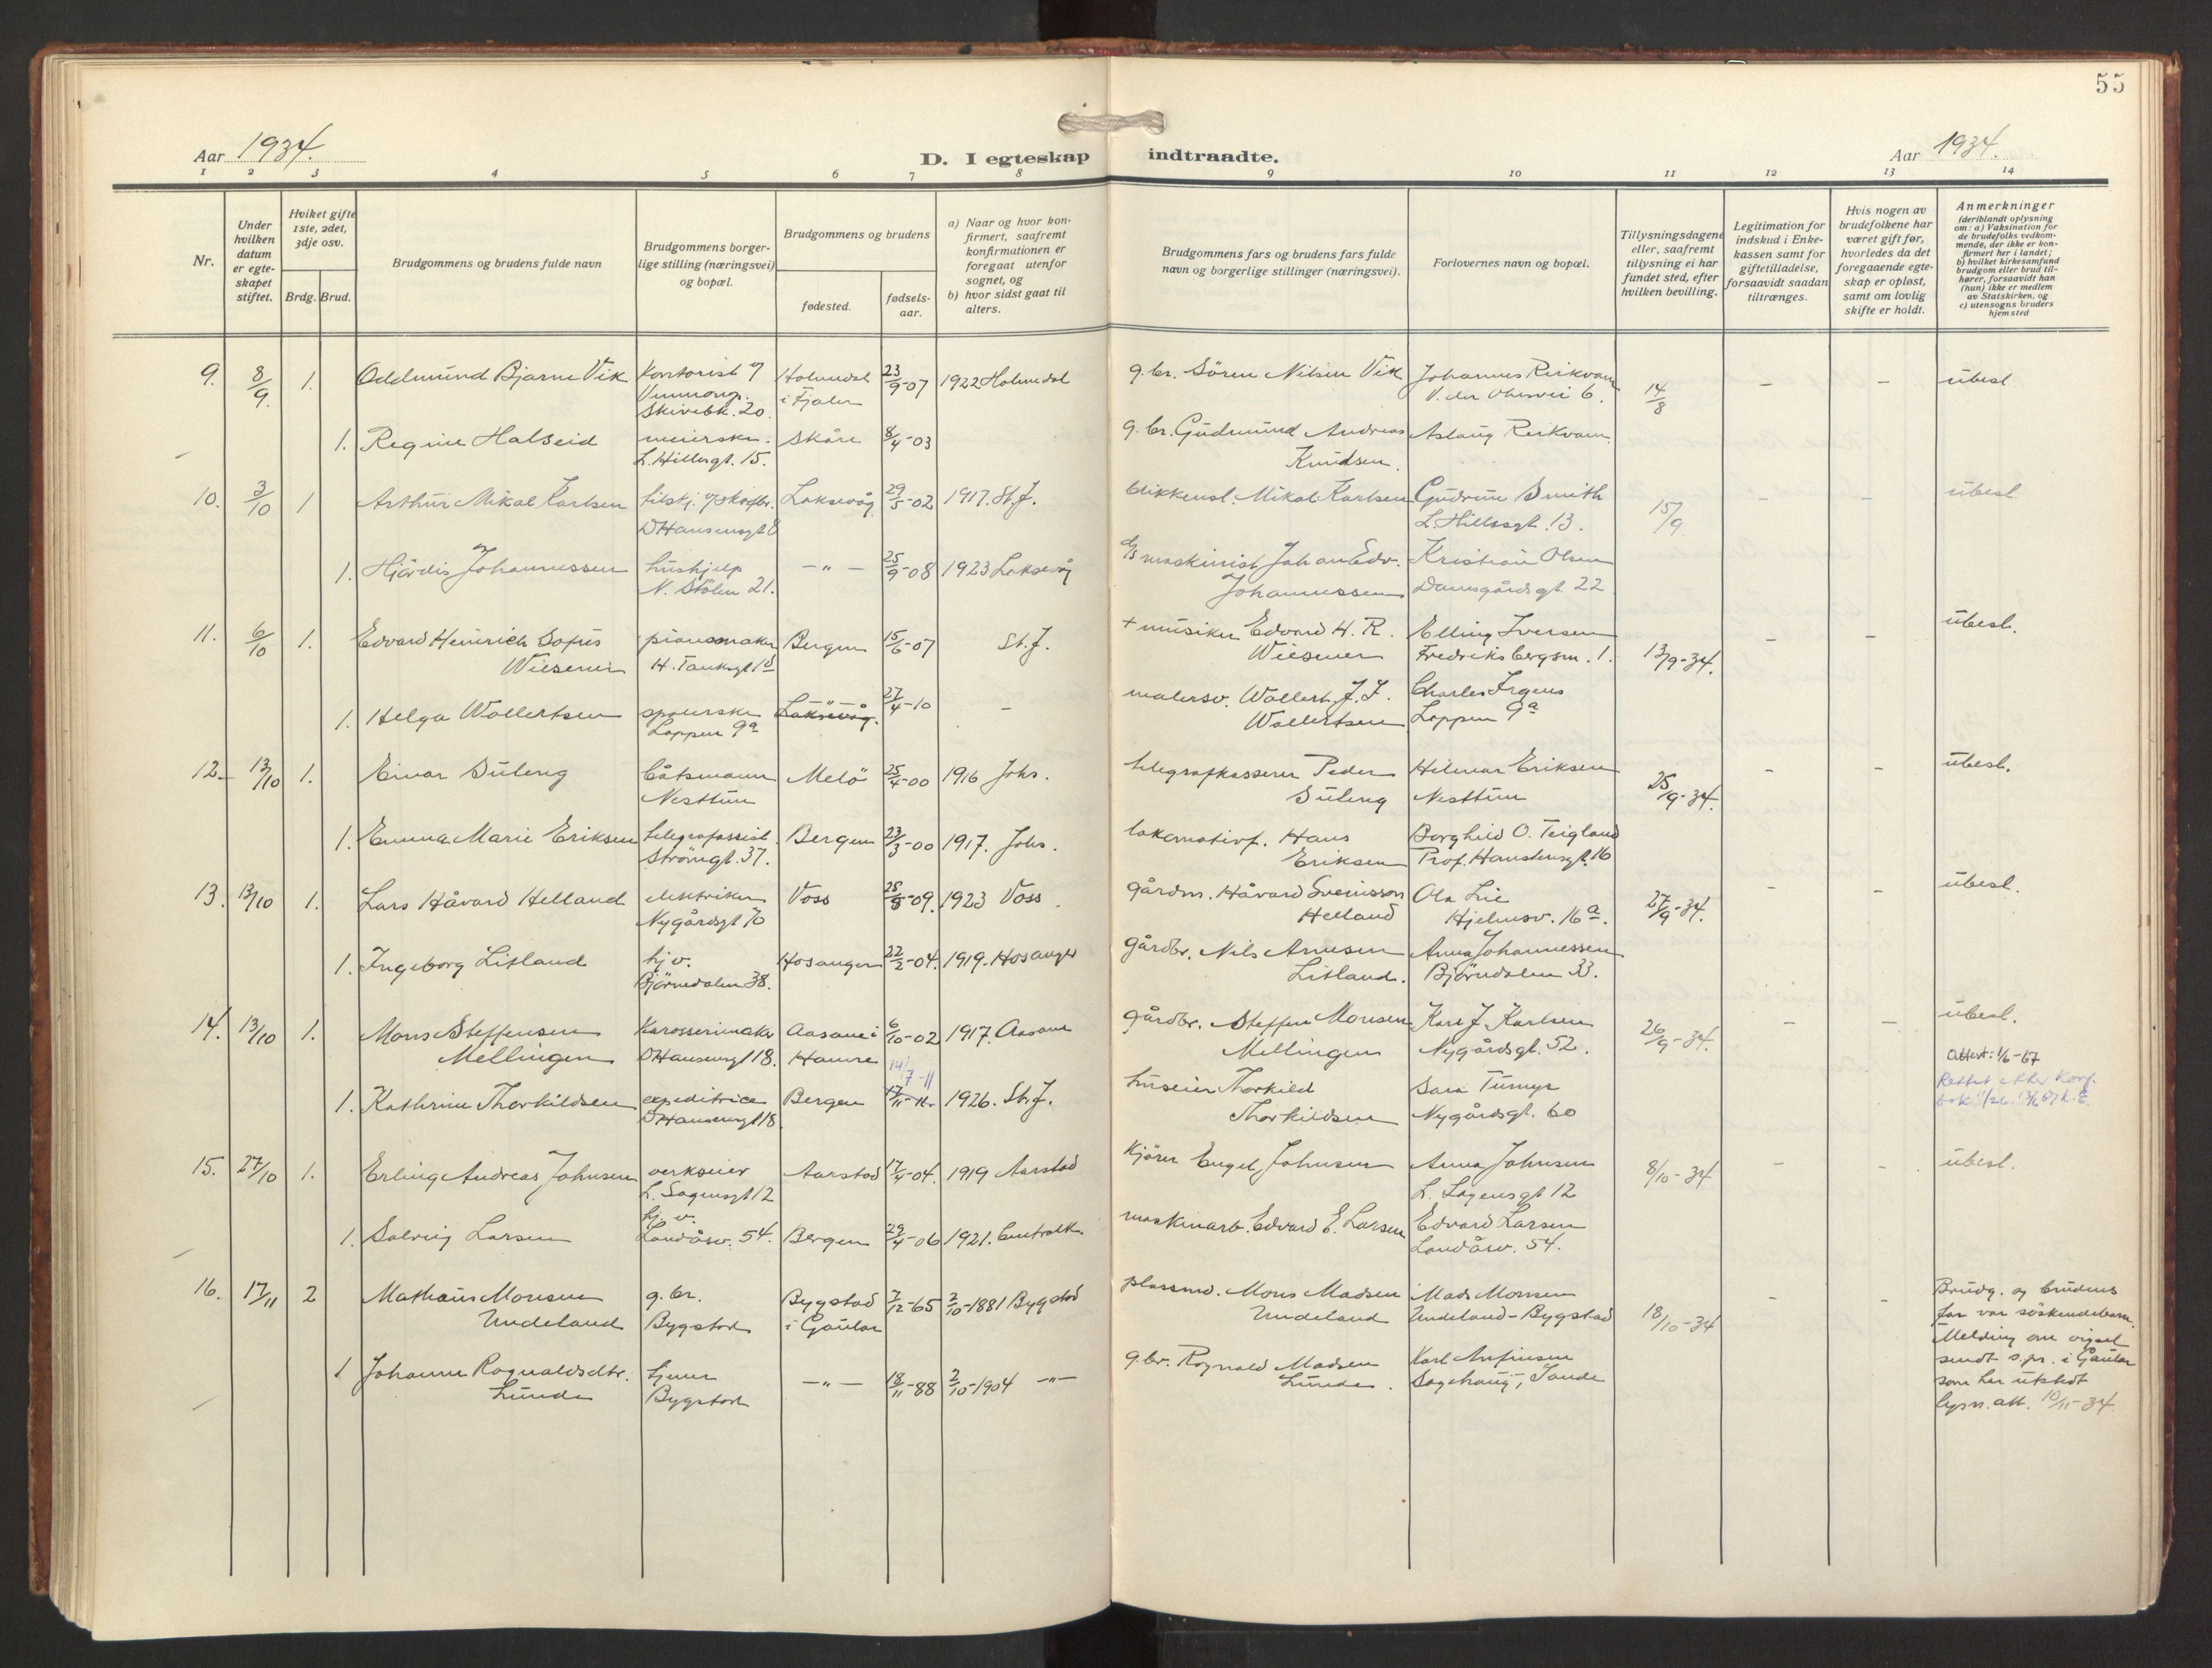 55
Aar 1934.
D. I egteskap indtraadte.
Aar 1934.
1 2 3 4 5 6 7 8 9 10 11 12 13 14
Nr.
Under hvilken datum er egteskapet stiftet.
Hviket gifte 1ste, 2det, 3dje osv.
Brdg. Brud.
Brudgommens og brudens fulde navn
Brudgommens borgerlige stilling (næringsvei) og bopæl.
Brudgommens og brudens
fødested.
fødselsaar.
a) Naar og hvor konfirmert, saafremt konfirmationen er foregaat utenfor sognet, og
b) hvor sidst gaat til alters.
Brudgommens fars og brudens fars fulde navn og borgerlige stillinger (næringsvei).
Forlovernes navn og bopæl.
Tillysningsdagene eller, saafremt tillysning ei har fundet sted, efter hvilken bevilling.
Legitimation for indskud i Enkekassen samt for giftetilladelse, forsaavidt saadan tiltrænges.
Hvis nogen av brudefolkene har været gift før, hvorledes da det foregaaende egteskap er opløst, samt om lovlig skifte er holdt.
Anmerkninger (deriblandt oplysning om: a) Vaksination for de brudefolks vedkommende, der ikke er konfirmert her i landet; b) hvilket kirkesamfund brudgom eller brud tilhører, forsaavidt han (hun) ikke er medlem av Statskirken, og c) utensogns bruders hjemsted
9. 8/9. 1. Oddmund Bjarne Vik Kontorist Holmedal 23/9-07 1922 Holmedal g.br. Sören Nilsen Vik Johannes Reikvam 14/8 - - ubesl
Skivebk. 20. i Fjaler 6.
1. Regine Halseid meierske. Skåre 8/4-03 g.br. Gudmund Andreas Aslaug Reikvam.
L. Hillesgt. 15. Knudsen.
10. 3/10 1 Arthur Mikal Karlsen Laksevåg 29/5-02 1917. St.J. blikkensl. Mikal Karlsen Gudrun Smith 15/9 - - ubesl.
D Hansensgt 8 L. Hillesgt. 13.
1. Hjördis Johannessen hushjelp -"- 25/9-08 1923 Laksevåg d/s maskinist Johan Edv. Kristian Olsen
N. Stölen 21. Johannessen Damsgårdsgt. 22
11. 6/10 1. Edvard Heinrich Sofus pianomaker Bergen 15/6-07 St.J. + musiker Edvard H. R. Elling Iversen 13/9-34. - - ubesl.
Wiesener H. Tanksgt 18 Wiesener Fredriksbergsm. 1.
1. Helga Wollertsen spolerske -"- Laksevåg. 27/4-10 - malersv. Wollert J. J. Charles Irgens
Loppen 9a Wollertsen Loppen 9a
12. 13/10 1. Einar Suleng båtsmann Melö 25/4-00 1916 Johs. telegrafkasserer Peder Hilmar Eriksen 25/9-34. - - ubesl.
Nesttun Suleng Nesttun
1. Emma Marie Eriksen telegrafassist. Bergen 23/3-00 1917. Johs. lokomotivf. Hans Borghild O. Teigland
Strömgt. 37. Eriksen Prof. Hansteensgt. 16
13. 13/10 1. Lars Håvard Helland elektriker Voss 25/8-09. 1923 Voss. gårdm. Håvard Sveinsson Ola Lie 27/9-34. - - ubesl.
Nygårdsgt 76 Helland Hjelmsv. 16a.
1. Ingeborg Litland hj v. Hosanger 22/2-04. 1919. Hosanger gårdbr. Nils Arnesen Anna Johannessen
Björndalen 38. Litland. Björndalen 33.
14. 13/10 1. Mons Steffensen Karosserimaker Aasane i 6/10-02 1917. Aasane gårdbr. Steffen Monsen Karl J. Karlsen 26/9-34. - - ubesl.
Mellingen D Hansensgt 18. Hamre Mellingen Nygårdsgt. 52.
14/7-11 Attest: 1/6-67
1. Kathrine Thorkildsen expeditrice Bergen 17/11-11. 1926. St.J. huseier Thorkild Sara Tumyr Rettet etter Konf.
D Hansensgt 18. Thorkildsen Nygårdsgt. 60
15. 27/10 1. Erling Andreas Johnsen verkseier Aarstad 17/4-04. 1919 Aarstad kjörer Engel Johnsen Anna Johnsen 8/10-34 - - ubesl.
L. Sagensgt 12 L. Sagensgt 12
1. Solveig Larsen hj. v. Bergen 29/4-06 1921. Centralk. maskinarb. Edvard E. Larsen Edvard Larsen
Landåsv. 54. Landåsv. 54.
16. 17/11 2 Mathæus Monsen g.br. Bygstad 7/12-65 2/10-1881 Bygstad plassmd. Mons Madsen Mads Monsen 18/10-34 - - Brudg. og brudens
Undeland Bygstad i Gaular Undeland Undeland-Bygstad far var söskendebarn.
Melding om vigsel
1 Johanne Ragnvaldsdtr. hjemme -"- 18/11-88 2/10-1904 -"- g.br. Ragnvald Madsen Karl Anfinsen sendt s.pr. i Gaular
Lunde Bygstad Lunde. Sagehaug, Sande som har utstedt
lysn. att. 10/11-34.